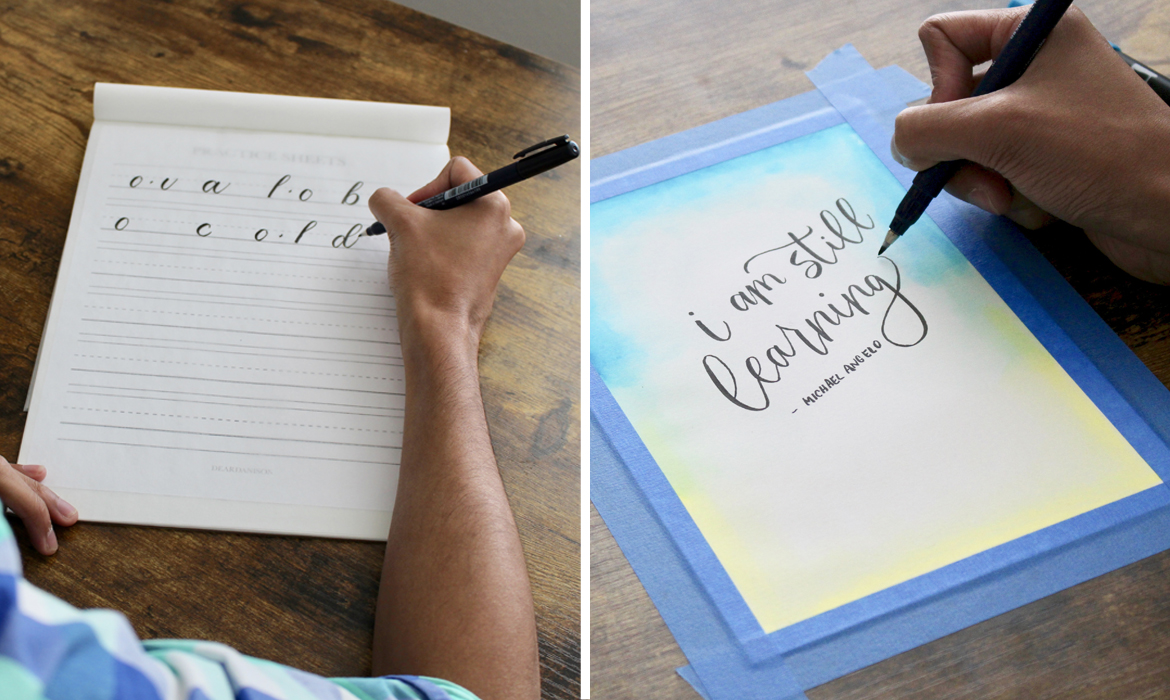 PRACTICE SHEETS
o · v a l · o b
o c o · l d
i am still
learning
- MICHAEL ANGELO